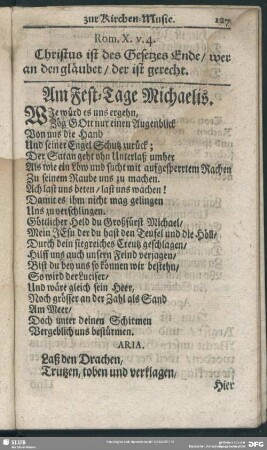 zur Kirchen-Music. 127
Rom. X. v. 4.
Christus ist des Gesetzes Ende/ wer
an den gläubet/ der ist gerecht.
Am Fest-Tage Michaelis.
WIe würd es uns ergehn,
Zög GOtt nur einen Augenblick
Von uns die Hand
Und seiner Engel Schutz zurück;
Der Satan geht ohn Unterlaß umher
Als wie ein Löw und sucht mit aufgesperrtem Rachen
Zu seinem Raube uns zu machen.
Ach last uns beten/ last uns wachen!
Damit es ihm nicht mag gelingen
Uns zu verschlingen.
Göttlicher Held du Großfürst Michael/
Mein JEsu der du hast den Teufel und die Höll/
Durch dein siegreiches Creutz geschlagen/
Hilff uns auch unsern Feind verjagen/
Bist du bey uns so können wir bestehn/
So wird der Lucifer/
Und wäre gleich sein Heer/
Noch grösser an der Zahl als Sand
Am Meer/
Doch unter deinen Schirmen
Vergeblich uns bestürmen.
ARIA.
Laß den Drachen,
Trutzen, toben und verklagen/
Hier
SLUB
DFG